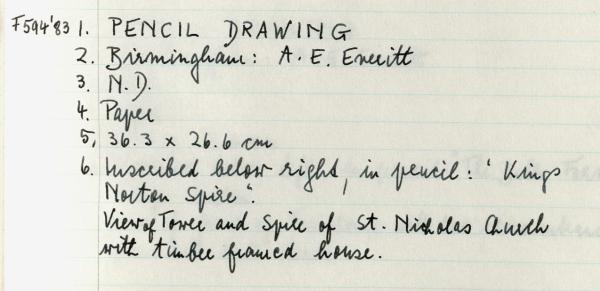 F594'83 1. PENCIL DRAWING
2. Birmingham: A. E. Everitt
3. N.D.
4. Paper
5, 36.3 x 26.6 cm
6. Inscribed below right, in pencil: "Kings
Norton Spire".
View of Tower and Spire of St. Nicholas Church
with timber framed house.